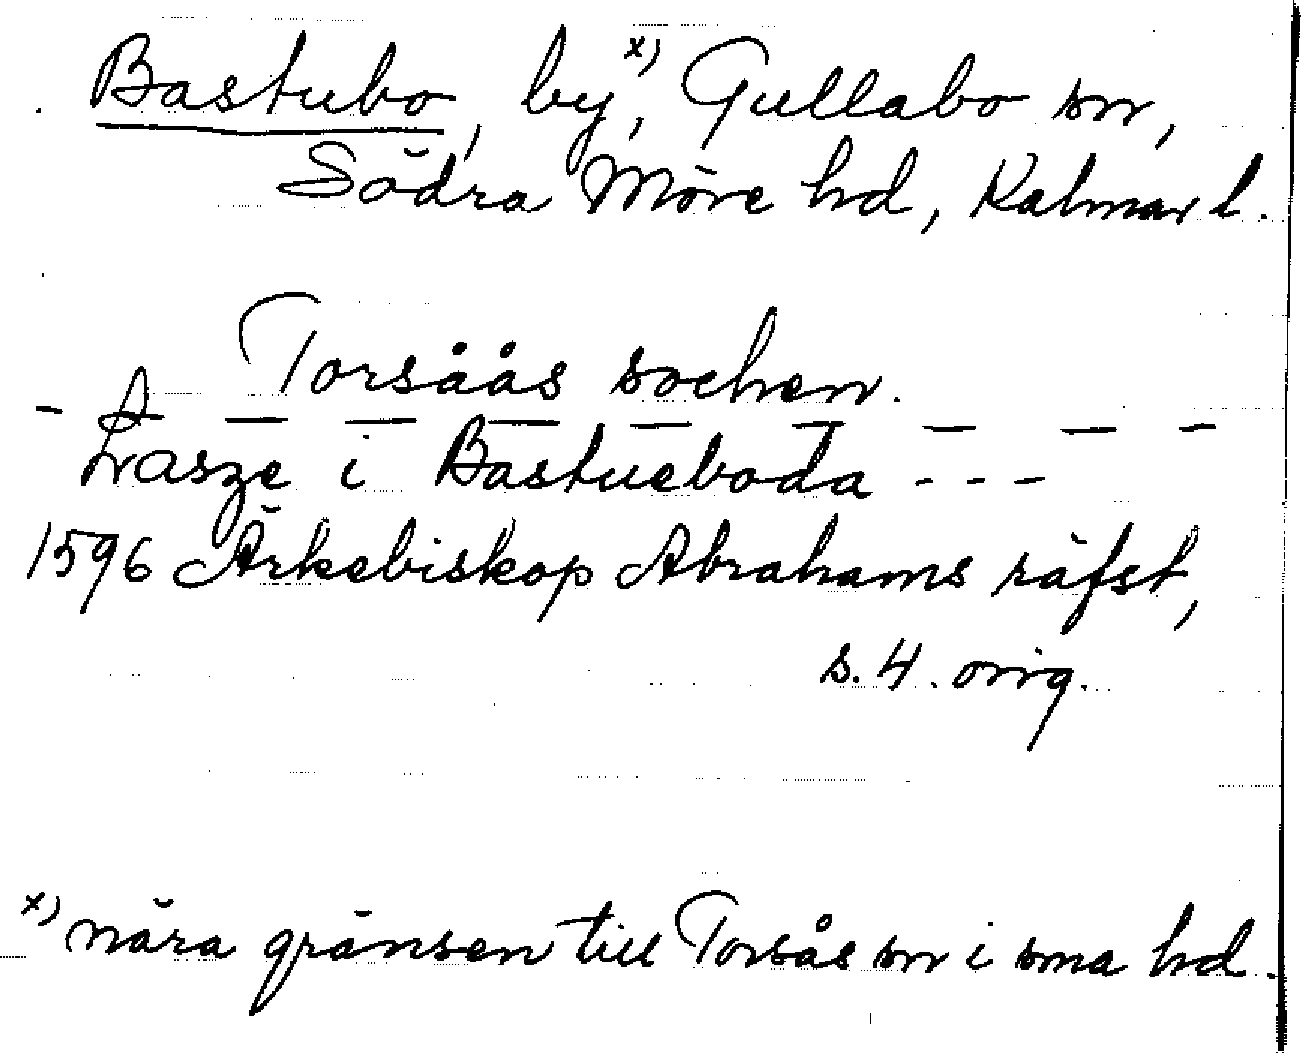 Bastubo, by,ˣ⁾ Gullabo sn,
Södra Möre hd, Kalmar l.
Torsåås sochen.
- - - - - - - - - -
Lasze i Bastueboda - - -
1596 Ärkebiskop Abrahams räfst,
s. 4. orig.
x) nära gränsen till Torsås sn i sma hd.